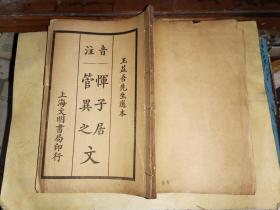 王益吾先生選本
音注
惲子居
管異之
文
上海文明書局印行